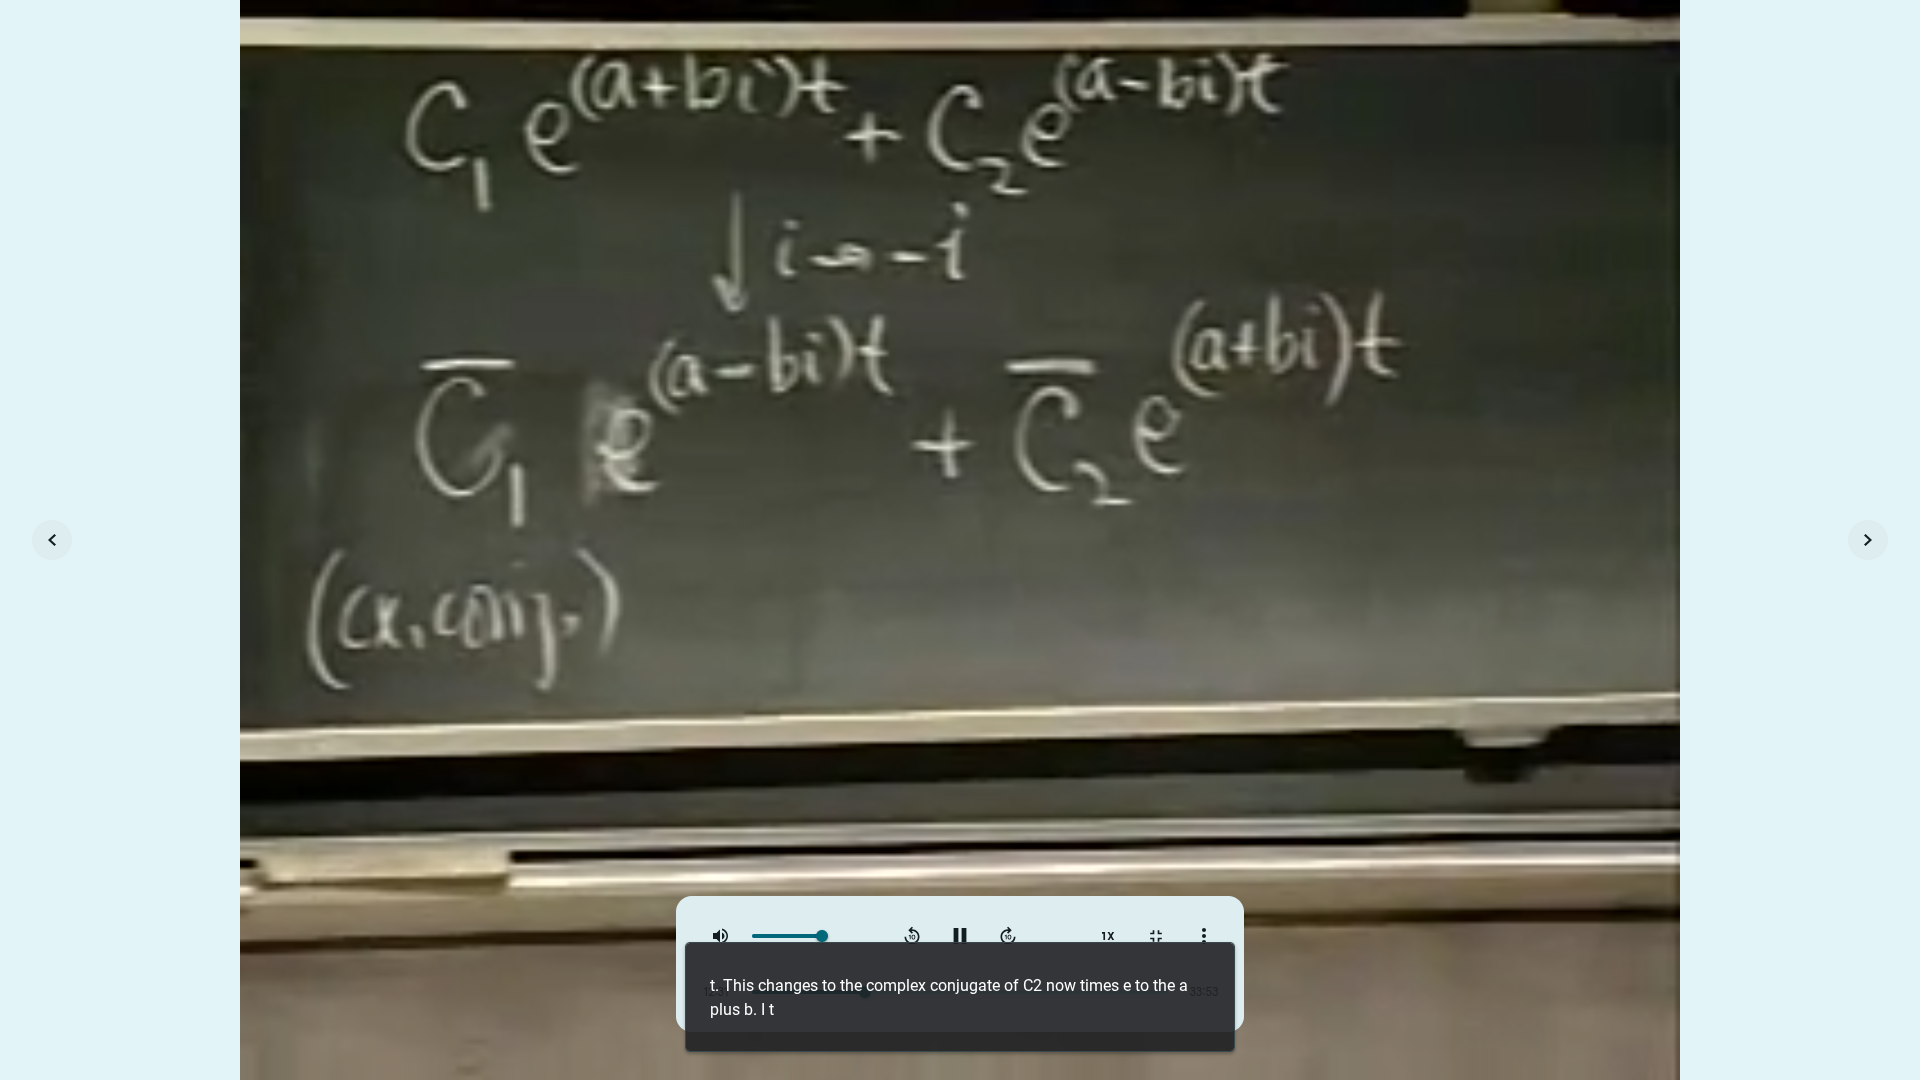 C₁ e^(a+bi)t + C₂ e^(a-bi)t
↓ i → -i
C̅₁ e^(a-bi)t + C̅₂ e^(a+bi)t
(cx. conj.)
10 10 1X
33:53
t. This changes to the complex conjugate of C2 now times e to the a
plus b. I t